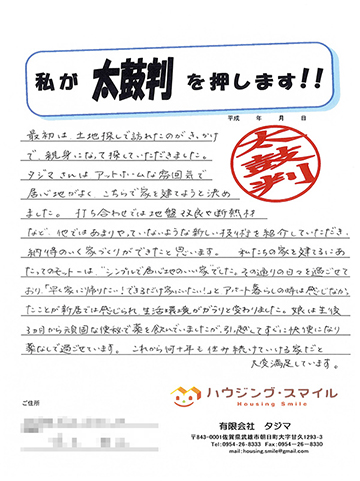 私が 太鼓判 を押します!!
平成　　年　　月　　日
太鼓判
最初は 土地探しで訪れたのがきっかけ
で、親身になって探していただきました。
タジマさんは アットホームな雰囲気で
居心地がよく、こちらで家を建てようと決め
ました。 打ち合わせでは地盤改良や断熱材
など、他ではあまりやっていないような新しい技術を紹介していただき、
納得のいく家づくりができたと思います。 私たちの家を建てるにあ
たってのモットーは、"シンプルで居心地のいい家"でした。その通りの日々を過ごせて
おり、「早く家に帰りたい!できるだけ家にいたい!」とアパート暮らしの時は感じなかっ
たことが新居では感じられ、生活環境がガラリと変わりました。娘は生後
3ヵ月から頑固な便秘で薬を飲んでいましたが、引越してすぐに快便になり
薬なしで過ごせています。 これから何十年も住み続けていける家だと
大変満足しています。
ハウジング・スマイル
Housing Smile
ご住所
有限会社 タジマ
〒843-0001佐賀県武雄市朝日町大字甘久1293-3
Tel:0954-26-8333 Fax:0954-26-8330
mail:housing.smile@gmail.com